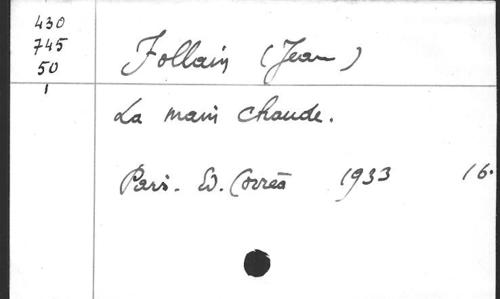 430
745
50
1
Follain (Jean)
La main chaude.
Paris. Ed. Corrêa 1933 16.